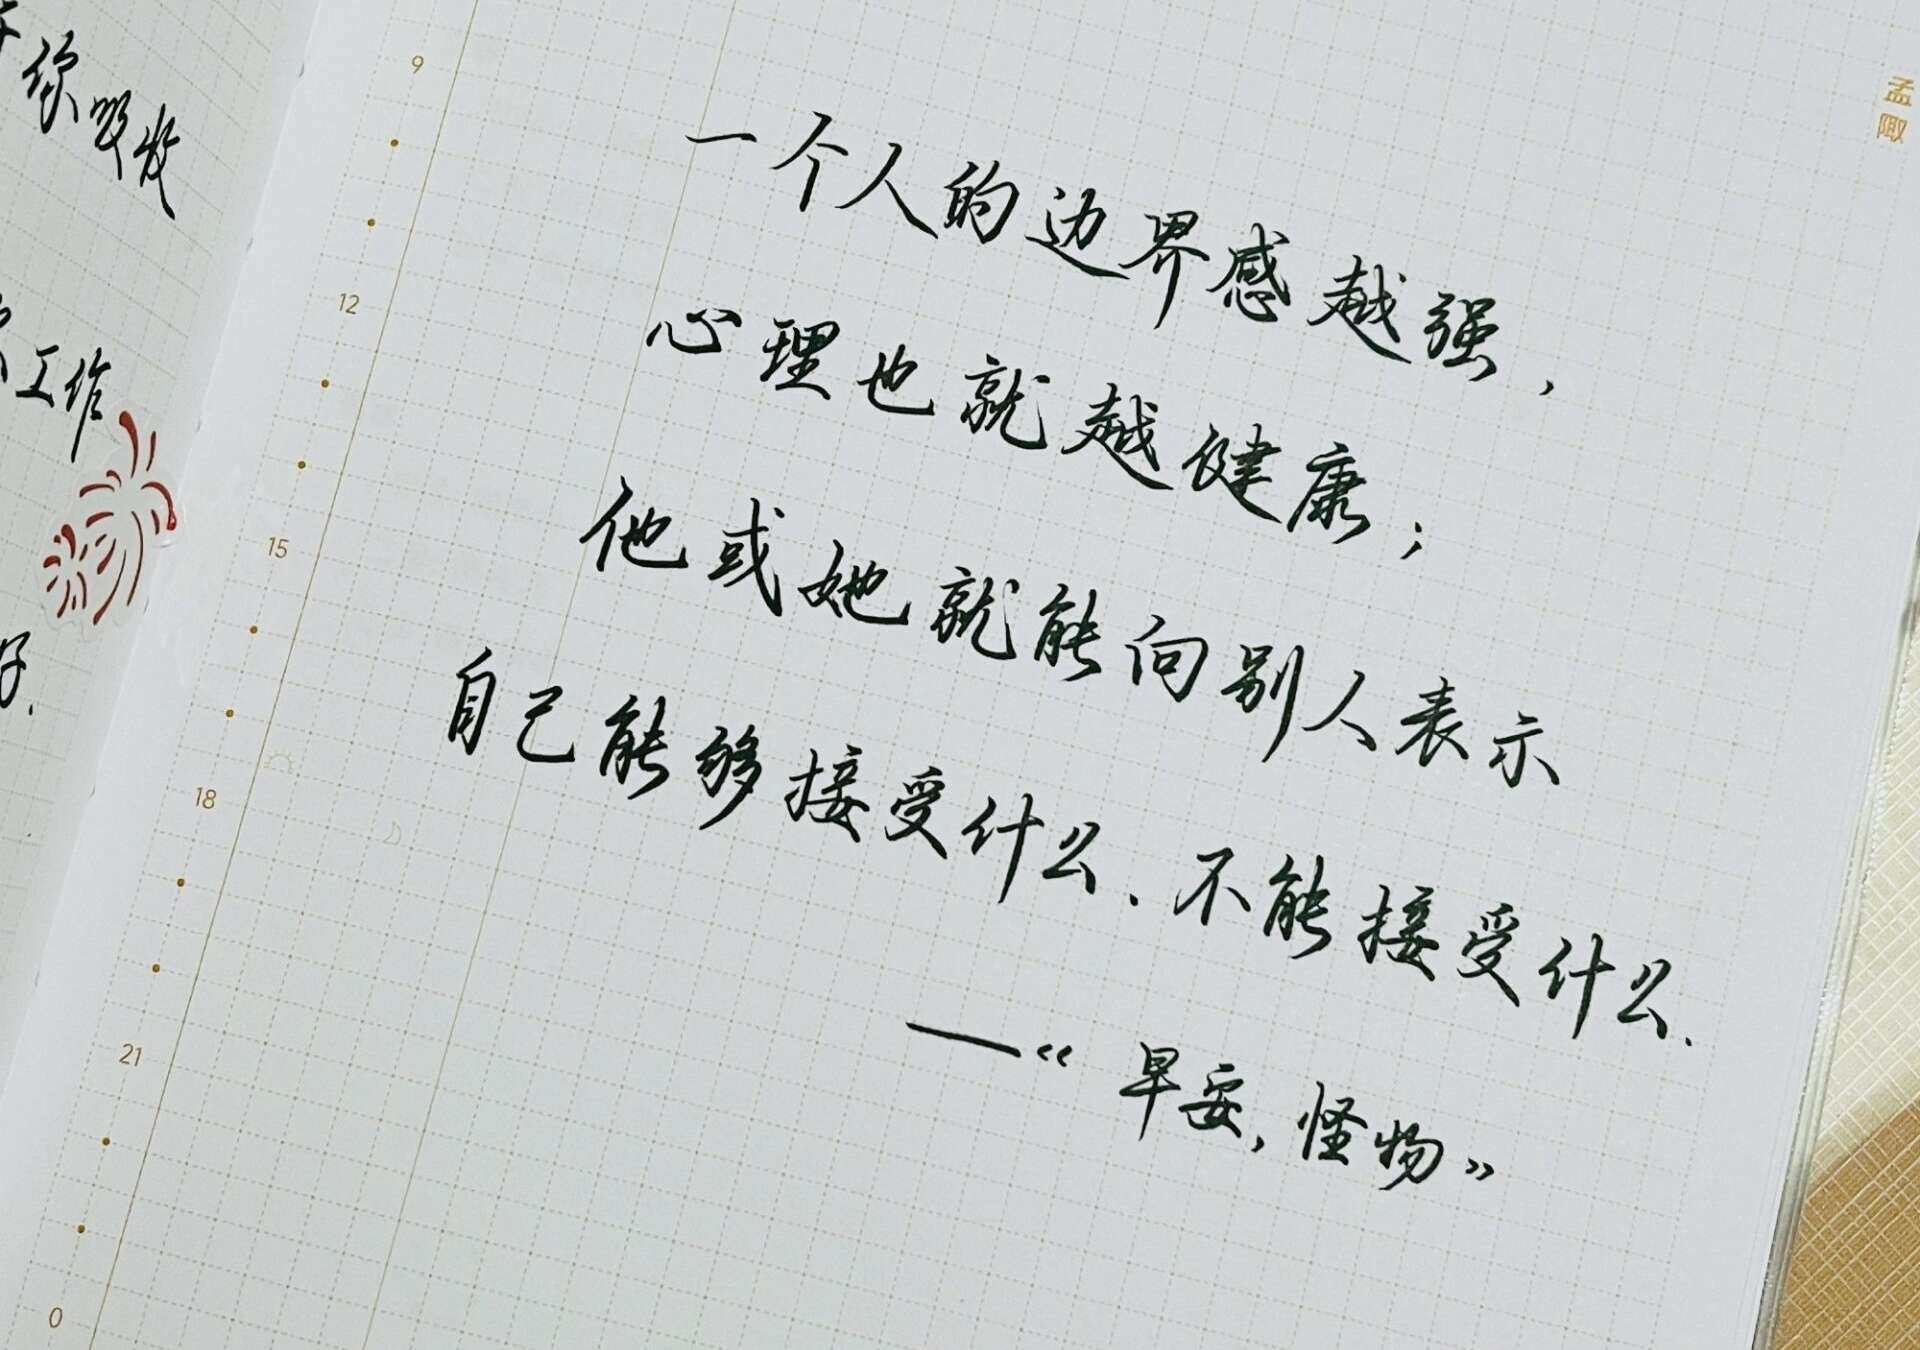 你吸发
工作
好.
9
12
15
18
21
0
孟陬
一个人的边界感越强,
心理也就越健康;
他或她就能向别人表示
自己能够接受什么.不能接受什么.
—《早安,怪物》